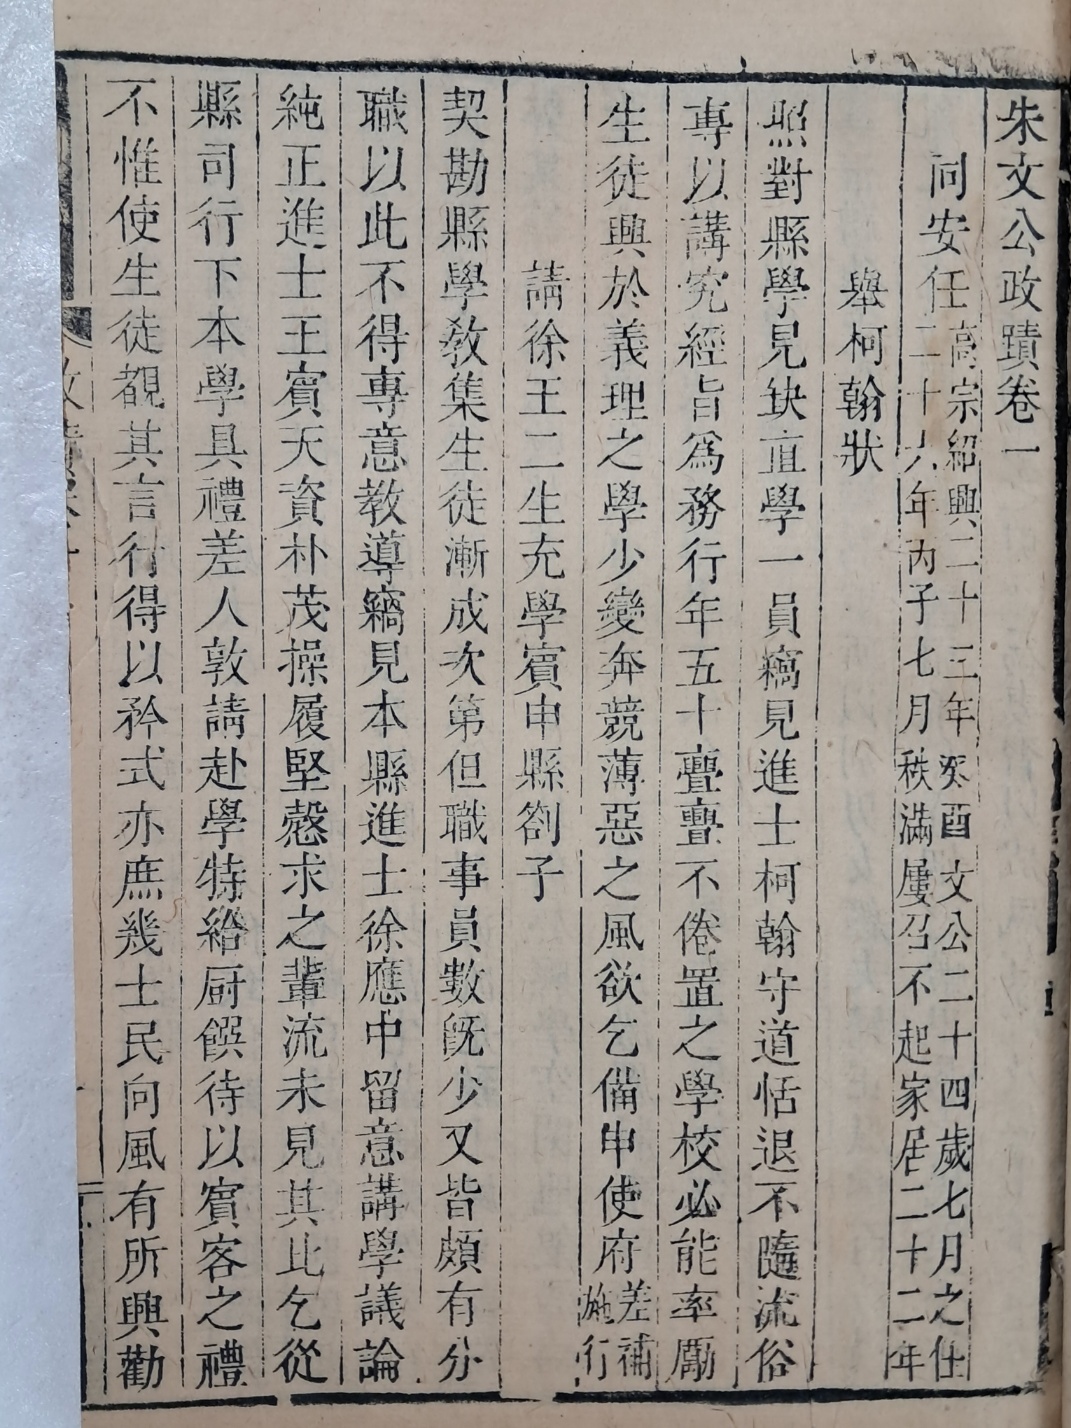 朱文公政蹟卷一
同安任 高宗紹興二十三年癸酉文公二十四歲七月之任
二十六年丙子七月秩滿屢召不起家居二十二年
舉柯翰狀
照對縣學見缺直學一員竊見進士柯翰守道恬退不隨流俗
專以講究經旨爲務行年五十亹亹不倦置之學校必能率勵
生徒興於義理之學少變奔競薄惡之風欲乞備申使府差補
施行
請徐王二生充學賓申縣劄子
契勘縣學敎集生徒漸成次第但職事員數旣少又皆頗有分
職以此不得專意教導竊見本縣進士徐應中留意講學議論
純正進士王賓天資朴茂操履堅慤求之輩流未見其比乞從
縣司行下本學具禮差人敦請赴學特給厨饌待以賓客之禮
不惟使生徒覩其言行得以矜式亦庶幾士民向風有所興勸